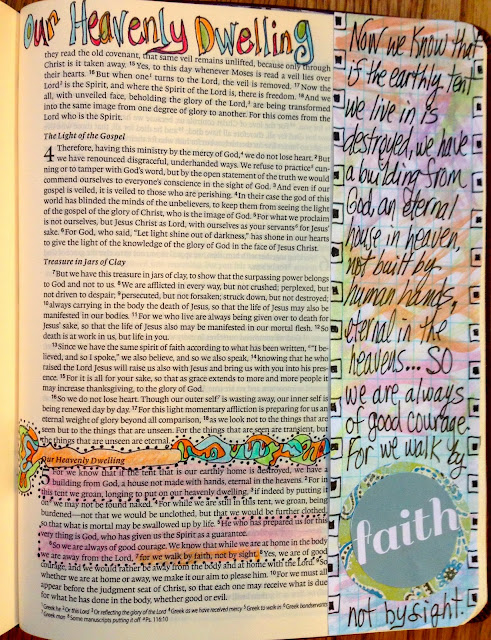 Our Heavenly Dwelling
they read the old covenant, that same veil remains unlifted, because only through
Christ is it taken away. 15 Yes, to this day whenever Moses is read a veil lies over
their hearts. 16 But when one¹ turns to the Lord, the veil is removed. 17 Now the
Lord² is the Spirit, and where the Spirit of the Lord is, there is freedom. 18 And we
all, with unveiled face, beholding the glory of the Lord,³ are being transformed
into the same image from one degree of glory to another. For this comes from the
Lord who is the Spirit.
The Light of the Gospel
4 Therefore, having this ministry by the mercy of God,⁴ we do not lose heart. 2 But
we have renounced disgraceful, underhanded ways. We refuse to practice⁵ cun-
ning or to tamper with God's word, but by the open statement of the truth we would
commend ourselves to everyone's conscience in the sight of God. 3 And even if our
gospel is veiled, it is veiled to those who are perishing. 4 In their case the god of this
world has blinded the minds of the unbelievers, to keep them from seeing the light
of the gospel of the glory of Christ, who is the image of God. 5 For what we proclaim
is not ourselves, but Jesus Christ as Lord, with ourselves as your servants⁶ for Jesus'
sake. 6 For God, who said, "Let light shine out of darkness," has shone in our hearts
to give the light of the knowledge of the glory of God in the face of Jesus Christ.
Treasure in Jars of Clay
7 But we have this treasure in jars of clay, to show that the surpassing power belongs
to God and not to us. 8 We are afflicted in every way, but not crushed; perplexed, but
not driven to despair; 9 persecuted, but not forsaken; struck down, but not destroyed;
10 always carrying in the body the death of Jesus, so that the life of Jesus may also be
manifested in our bodies. 11 For we who live are always being given over to death for
Jesus' sake, so that the life of Jesus also may be manifested in our mortal flesh. 12 So
death is at work in us, but life in you.
13 Since we have the same spirit of faith according to what has been written, "I be-
lieved, and so I spoke," we also believe, and so we also speak, 14 knowing that he who
raised the Lord Jesus will raise us also with Jesus and bring us with you into his pres-
ence. 15 For it is all for your sake, so that as grace extends to more and more people it
may increase thanksgiving, to the glory of God.
16 So we do not lose heart. Though our outer self⁷ is wasting away, our inner self is
being renewed day by day. 17 For this light momentary affliction is preparing for us an
eternal weight of glory beyond all comparison, 18 as we look not to the things that are
seen but to the things that are unseen. For the things that are seen are transient, but
the things that are unseen are eternal.
Our Heavenly Dwelling
5 For we know that if the tent that is our earthly home is destroyed, we have a
building from God, a house not made with hands, eternal in the heavens. 2 For in
this tent we groan, longing to put on our heavenly dwelling, 3 if indeed by putting it
on⁸ we may not be found naked. 4 For while we are still in this tent, we groan, being
burdened—not that we would be unclothed, but that we would be further clothed,
so that what is mortal may be swallowed up by life. 5 He who has prepared us for this
very thing is God, who has given us the Spirit as a guarantee.
6 So we are always of good courage. We know that while we are at home in the body
we are away from the Lord, 7 for we walk by faith, not by sight. 8 Yes, we are of good
courage, and we would rather be away from the body and at home with the Lord. 9 So
whether we are at home or away, we make it our aim to please him. 10 For we must all
appear before the judgment seat of Christ, so that each one may receive what is due
for what he has done in the body, whether good or evil.
¹ Greek he ² Or this Lord ³ Or reflecting the glory of the Lord ⁴ Greek as we have received mercy ⁵ Greek to walk in ⁶ Greek bondservants
⁷ Greek man ⁸ Some manuscripts putting it off
Now we know that
if the earthly tent
we live in is
destroyed, we have
a building from
God, an eternal
house in heaven,
not built by
human hands,
eternal in the
heavens... SO
we are always
of good courage.
For we walk by
faith
not by sight.